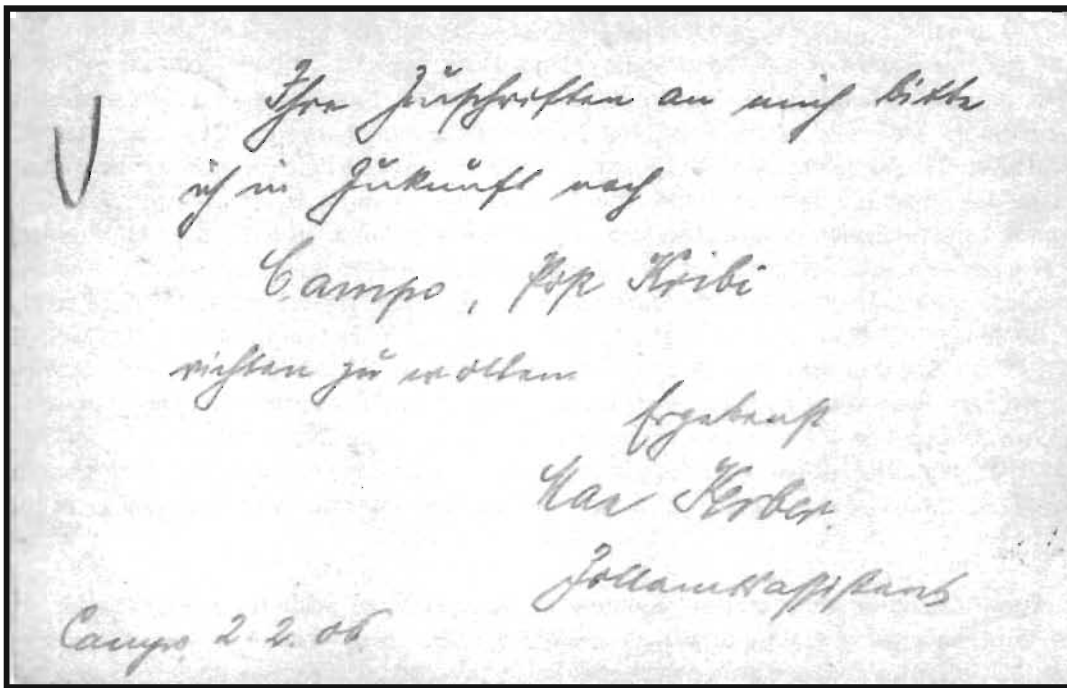 Ihre Zuschriften an mich bitte
ich in Zukunft nach
Campo, Post Kribi
richten zu wollen
Ergebenst
Max Kerber.
Zollamtsassistent
Campo, 2 2. 06